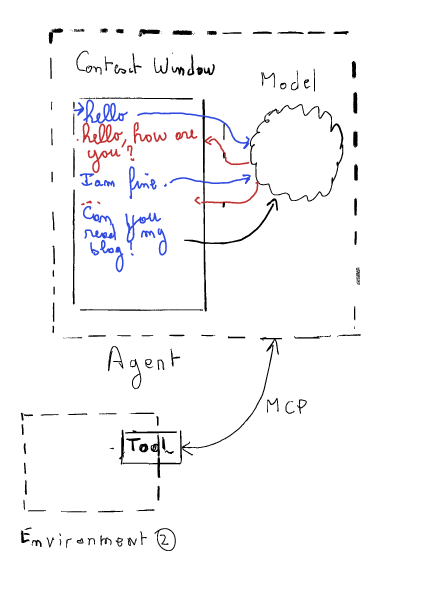 Context Window
Model
hello
hello, how are
you?
I am fine.
...
Can you
read my
blog?
Agent
MCP
TOOL
Environment 2